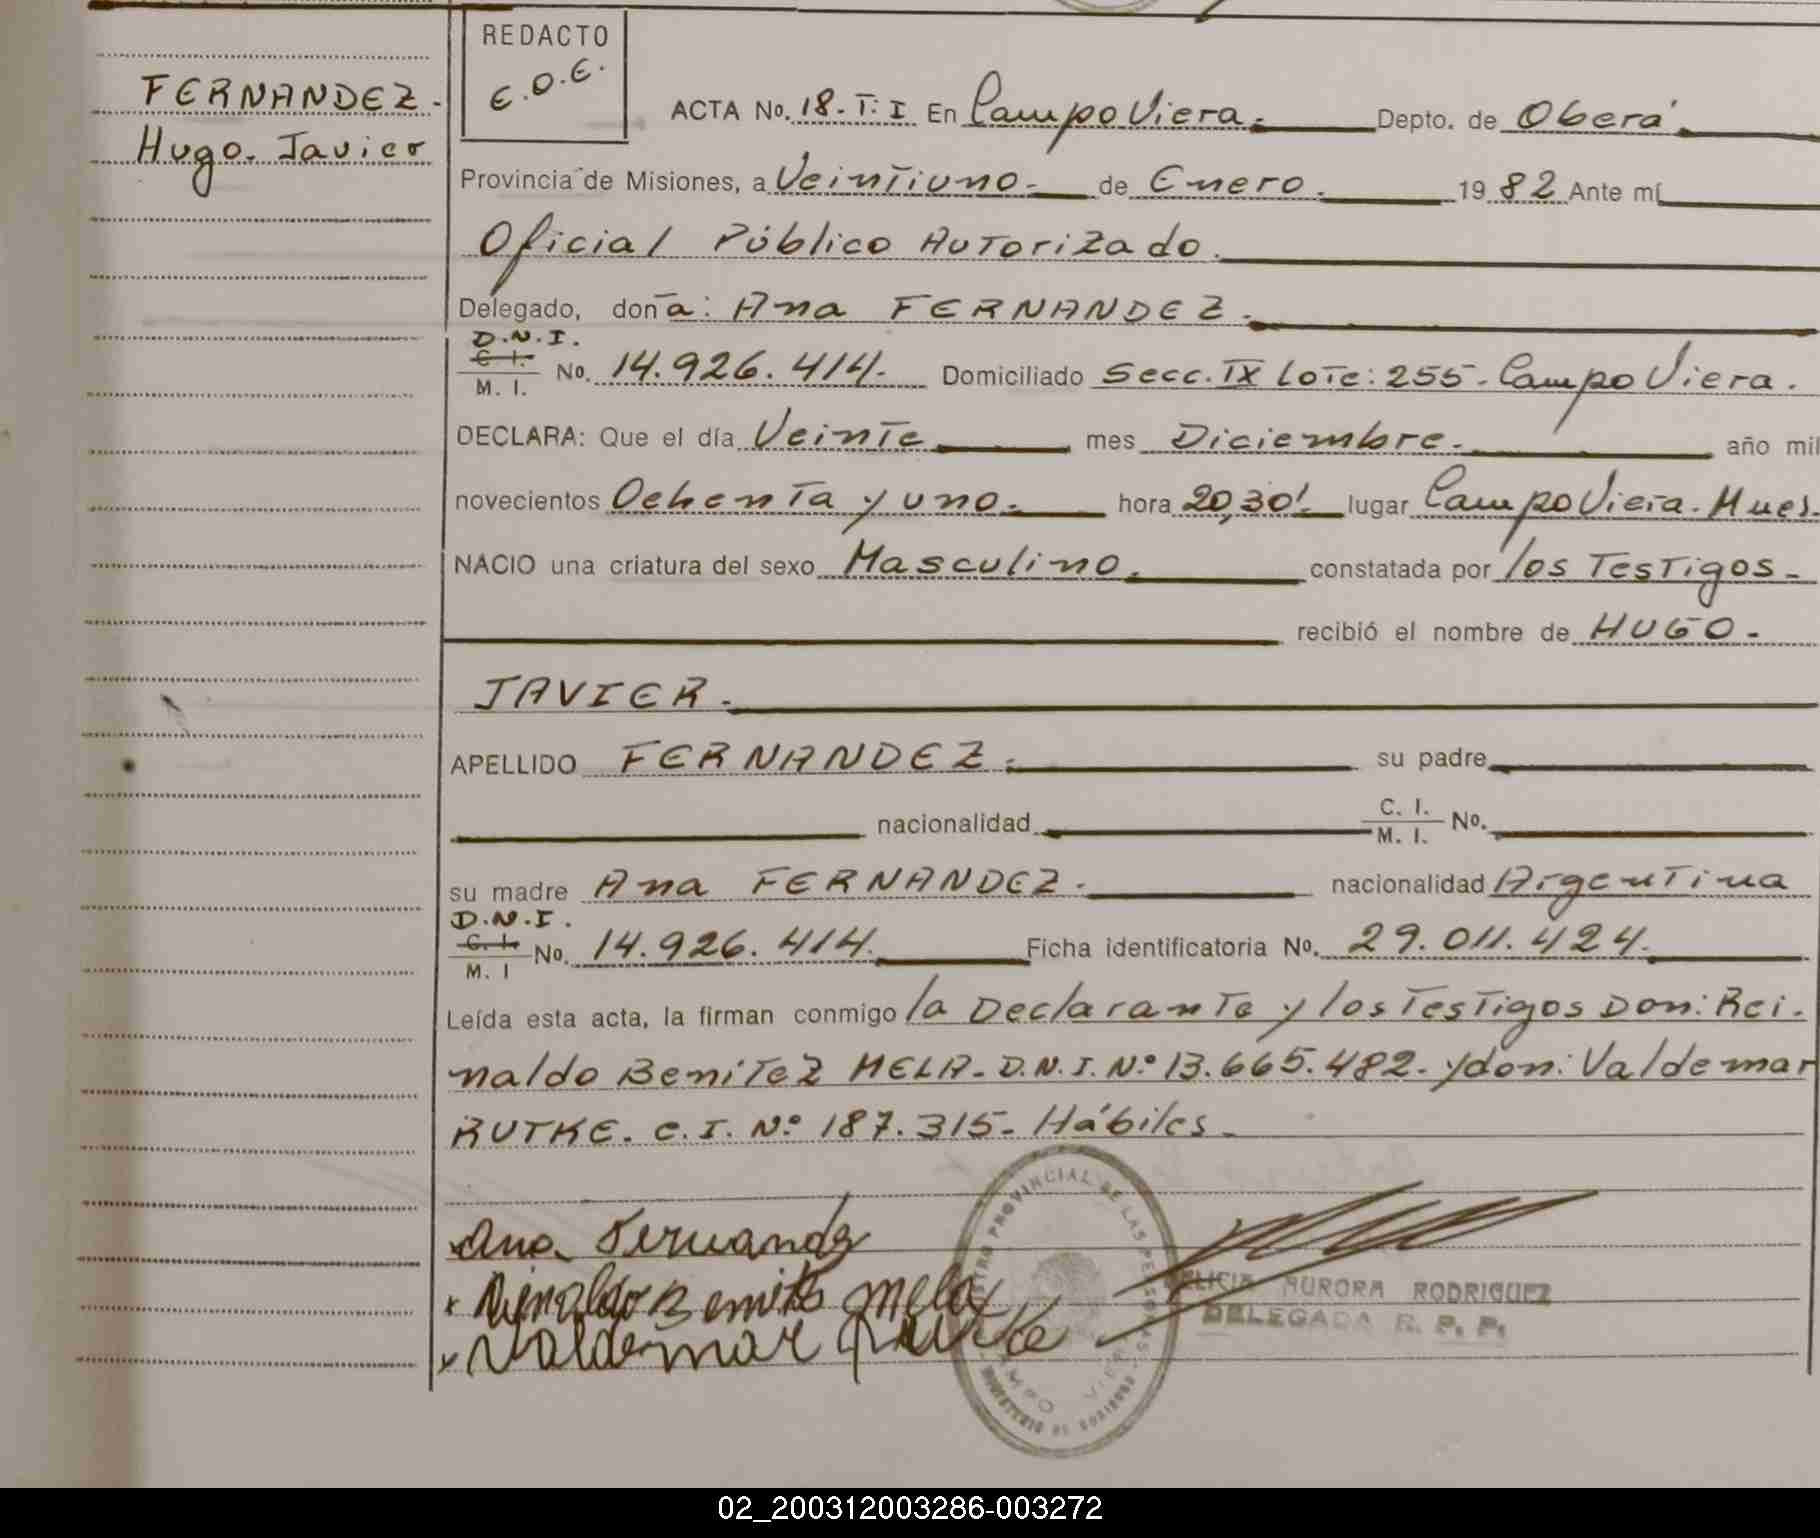 FERNANDEZ.
Hugo. Javier
REDACTO
E.O.E.
ACTA No. 18-T:I En Campo Viera. Depto. de Oberá
Provincia de Misiones, a Veintiuno. de Enero. 19 82 Ante mí
Oficial Público Autorizado.
Delegado, doña: Ana FERNANDEZ.
D.N.I.
C. I.
M. I.
No. 14.926.414. Domiciliado Secc. IX Lote: 255. Campo Viera.
DECLARA: Que el día Veinte mes Diciembre. año mil
novecientos Ochenta y uno. hora 20,30! lugar Campo Viera. Mnes.
NACIO una criatura del sexo Masculino. constatada por los Testigos-
recibió el nombre de HUGO.
JAVIER.
APELLIDO FERNANDEZ. su padre
nacionalidad C. I.
M. I. No.
su madre Ana FERNANDEZ. nacionalidad Argentina
D.N.I.
C. I.
M. I
No. 14.926.414. Ficha identificatoria No. 29.011.424.
Leída esta acta, la firman conmigo la Declarante y los Testigos Don: Rei-
naldo Benitez MELA. D.N.I. Nº 13.665.482. y don: Valdemar
RUTKE. C.I. Nº 187.315. Hábiles.
Ana Fernandez
x Reinaldo Benitez Mela
x Valdemar Rutke
PROVINCIAL DE LAS PERSONAS
AURORA RODRIGUEZ
DELEGADA R. P. P.
02_200312003286-003272